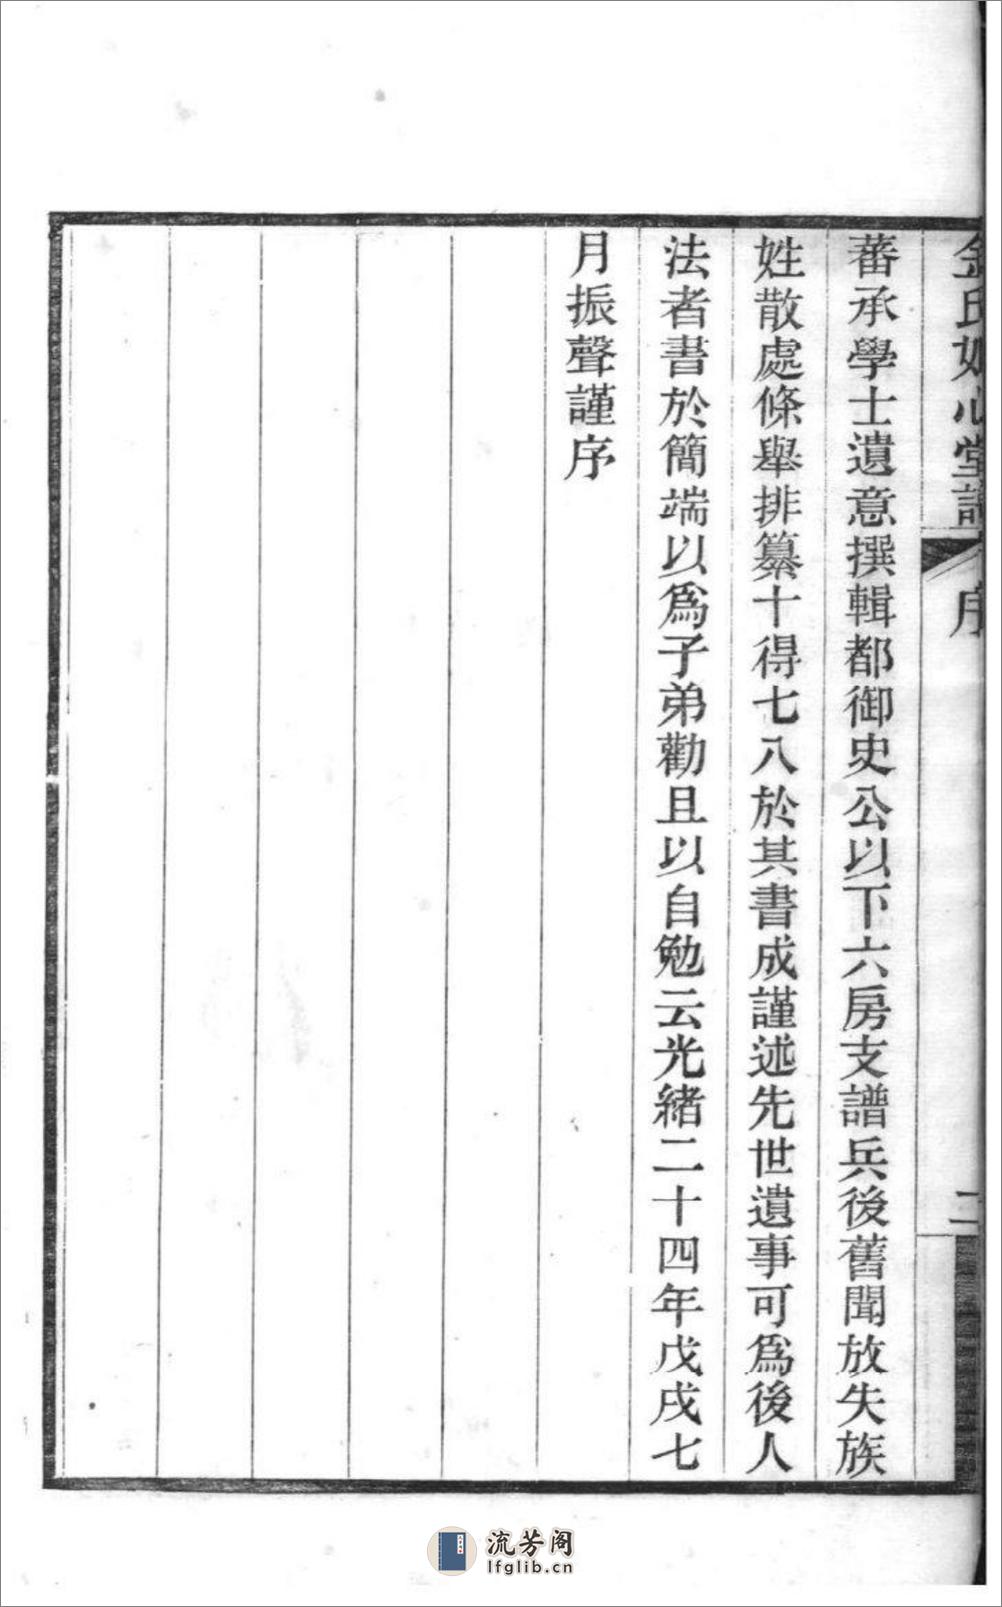 金氏如心堂譜 序 二
蕃承學士遺意撰輯都御史公以下六房支譜兵後舊聞放失族
姓散處條舉排纂十得七八於其書成謹述先世遺事可爲後人
法者書於簡端以爲子弟勸且以自勉云光緒二十四年戊戌七
月振聲謹序
流芳阁
lfglib.cn